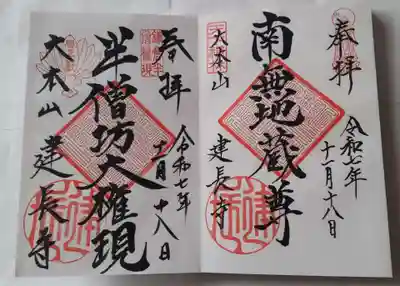 奉拝
南無地蔵尊
大本山
建長寺
令和七年
十一月十八日
奉拝
半僧坊大権現
大本山
建長寺
令和七年
十一月十八日